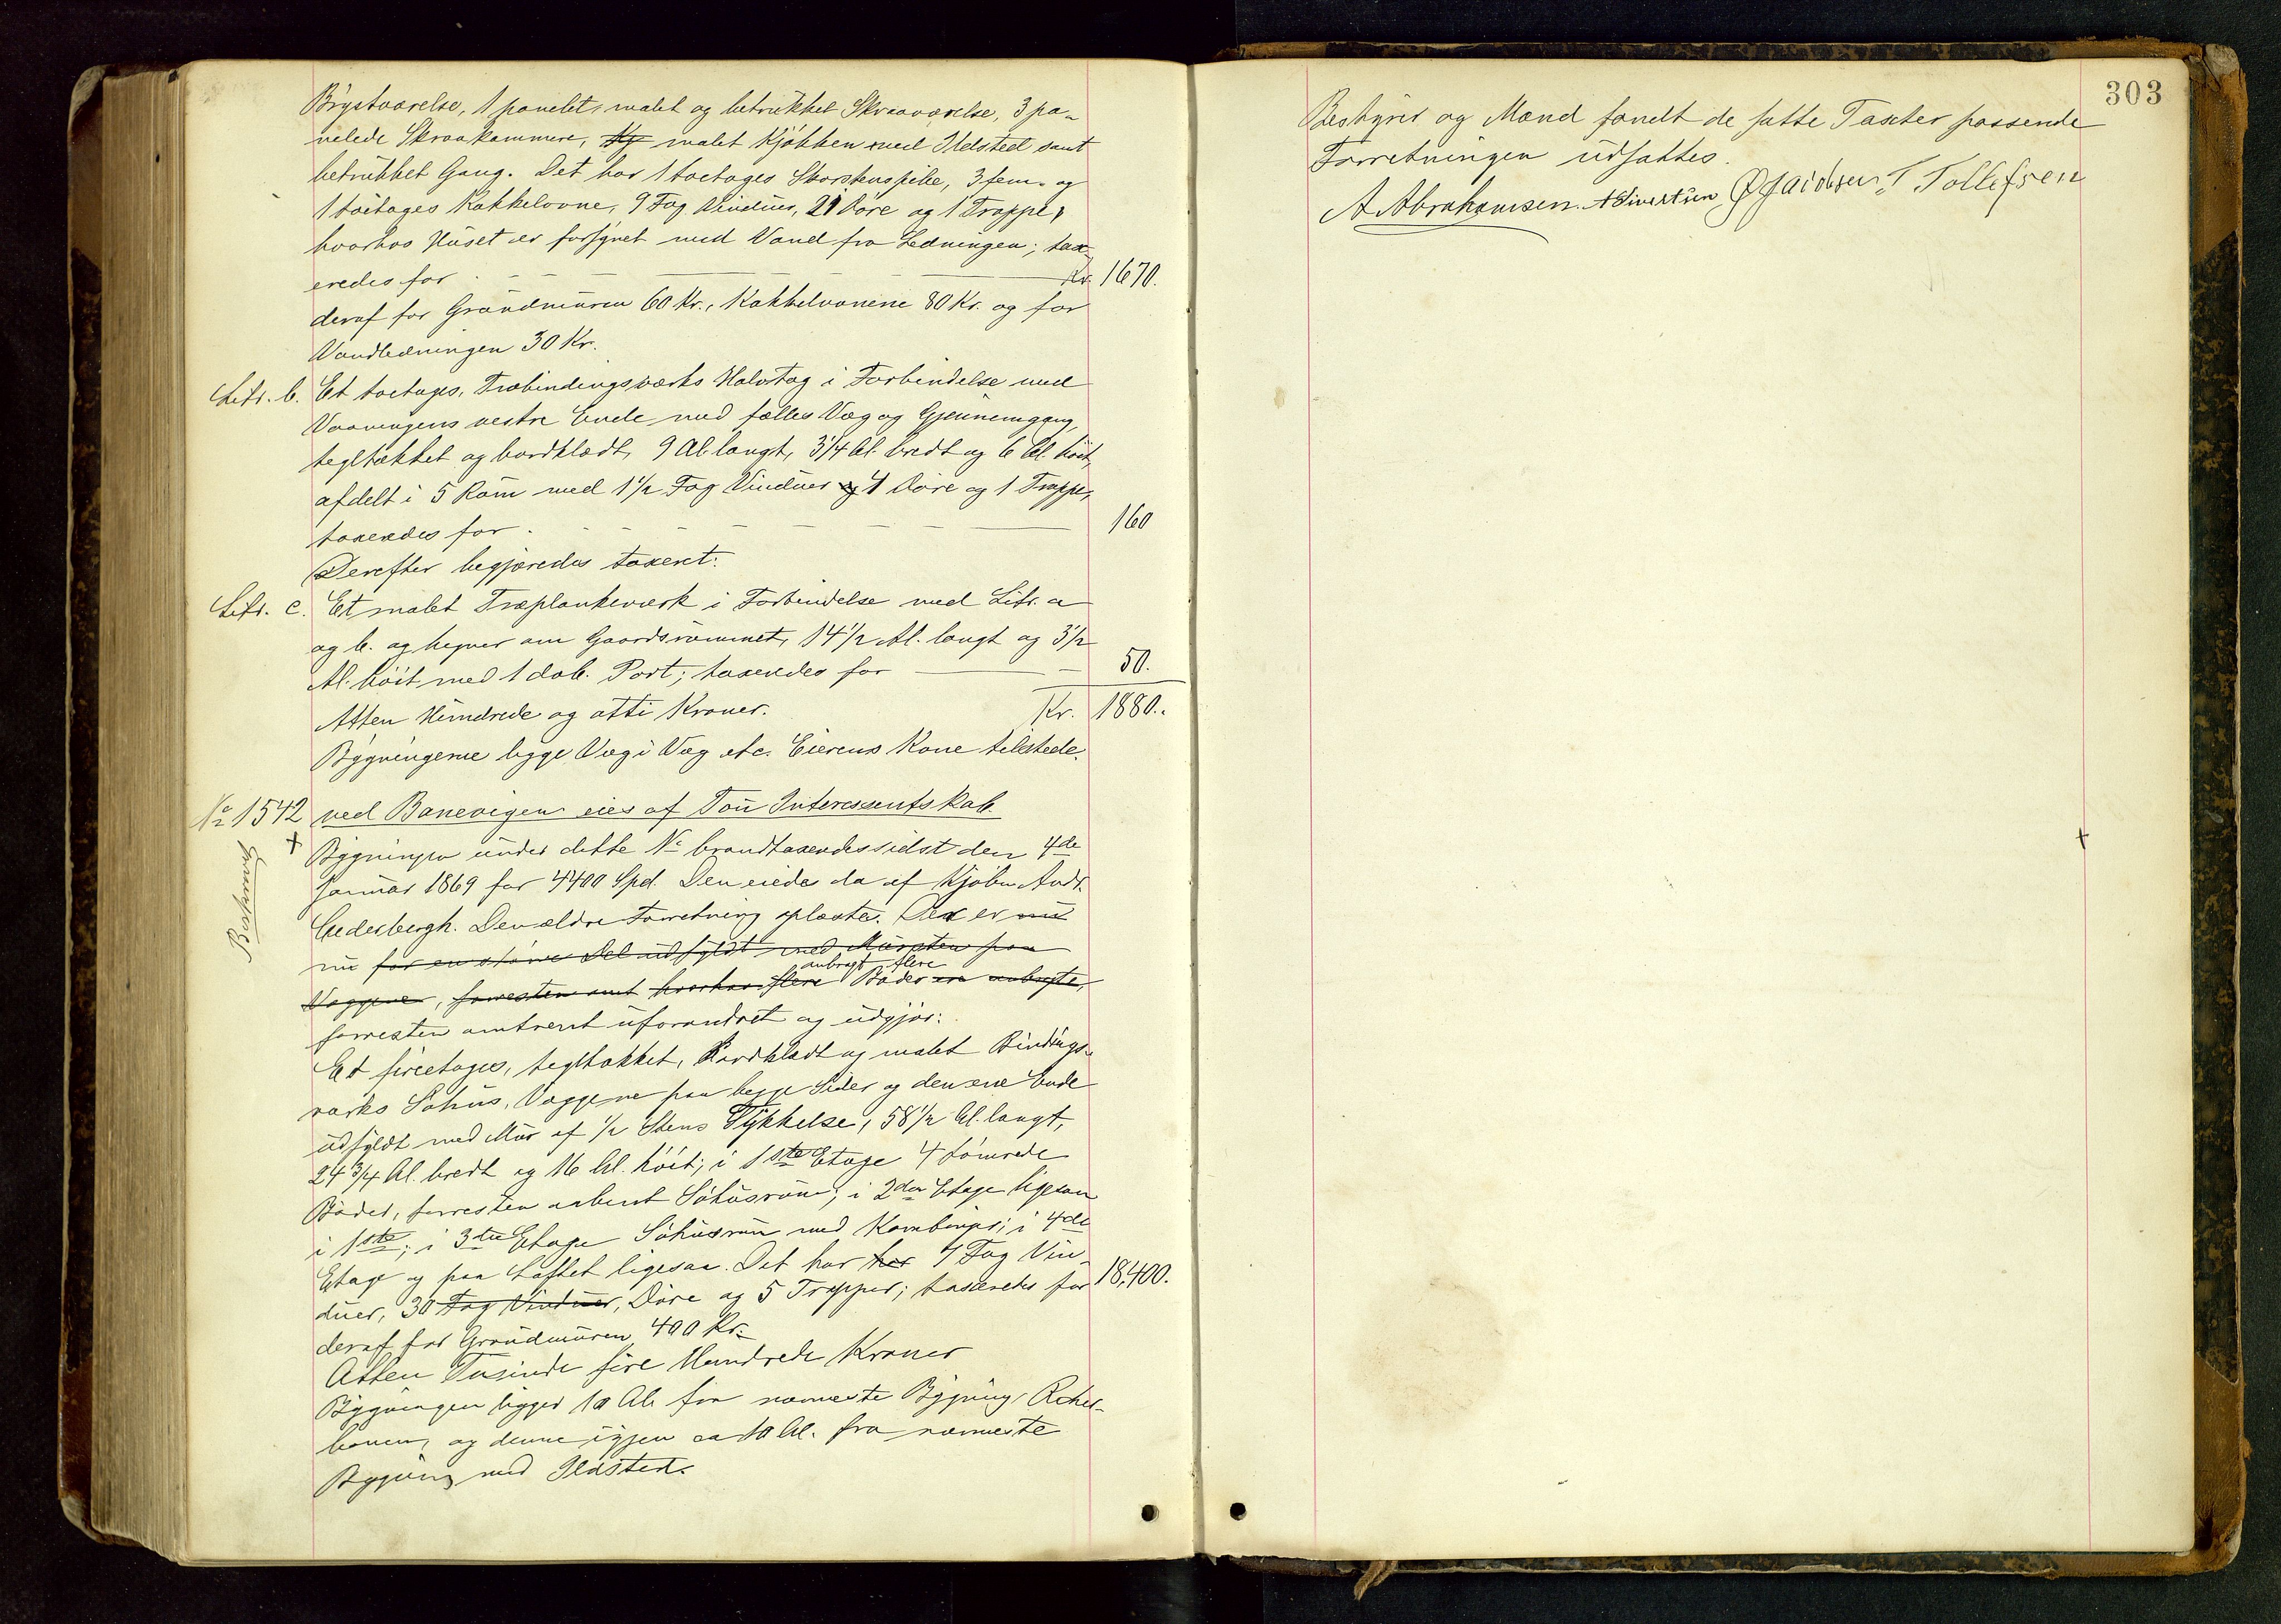 Brystværelse, 1 panelet, malet og betrukket Skraaværelse, 3 pa-
nelede Skraakammere, malet Kjøkken med Ildsted samt
betrukket Gang. Det har 1 toetages Skorstenspibe, 3 fem- og
1 toetages Kakkelovne, 9 Fag Vinduer, 21 Döre og 1 Trappe,
hvorhos Huset er forsynet med Vand fra Ledningen; tax-
eredes for Kr. 1670.
deraf for Grundmuren 60 Kr., Kakkelovnene 80 Kr. og for
Vandledningen 30 Kr.
Litr. b. Et toetages, Træbindingsværks Halvtag i Forbindelse med
Vaaningens vestre Ende med fælles Væg og Gjennemgang,
tegltækket og bordklædt, 9 Al. langt, 3 1/4 Al. bredt og 6 Al. höit,
afdelt i 5 Rum med 1 1/2 Fag Vinduer 4 Döre og 1 Trappe,
taxeredes for 160
Derefter begjæredes taxeret:
Litr. c. Et malet Træplankeværk i Forbindelse med Litr. a
og b. og hegner om Gaardsrummet, 14 1/2 Al. langt og 3 1/2
Al. höit med 1 dob. Port; taxeredes for 50.
Atten Hundrede og otti Kroner. Kr. 1880.
Bygningerne ligge Væg i Væg etc. Eierens Kone tilstede.
No 1542 ved Banevigen eies af Tou Interessentskab
+ Bygningen under dette No brandtaxeredes sidst den 4de
Januar 1869 for 4400 Spd. Den eiedes da af Kjöbm. Andr.
Cedesbergh. Den ældre Forretning oplæstes. Den er nu
nu for en större Del udfyldt med Mursten paa
Væggene, forresten omt hvorhos flere anbragt flere Boder ere anbragte,
forresten omtrent uforandret og udgjør:
Et fireetages, tegltækket, bordklædt og malet Bindings-
værks Söhus, Væggene paa begge Sider og den ene Ende
udfyldt med Mur af 1/2 Stens Tykkelse, 58 1/2 Al. langt,
24 3/4 Al. bredt og 16 Al. höit; i 1ste Etage 4 tömrede
Boder, forresten aabent Söhusrum; i 2den Etage ligesaa
i 1ste; i 3die Etage Söhusrum med; i 4de
Etage og paa Loftet ligesaa. Det har har 7 Fag Vin-
duer, 30 Fag Vinduer, Döre og 5 Trapper; taxeredes for 18,400.
deraf for Grundmuren 400 Kr.
Atten Tusinde fire Hundrede Kroner
Bygningen ligger 10 Al. fra nærmeste Bygning,
banen, og denne igjen ca 10 Al. fra nærmeste
Bygning med Ildsted.
303
Bestyrer og Mænd fandt de satte Taxter passende
Forretningen udsattes.
A Abrahamsen. A Sivertsen Ø Jacobsen T. Tollefsen
+